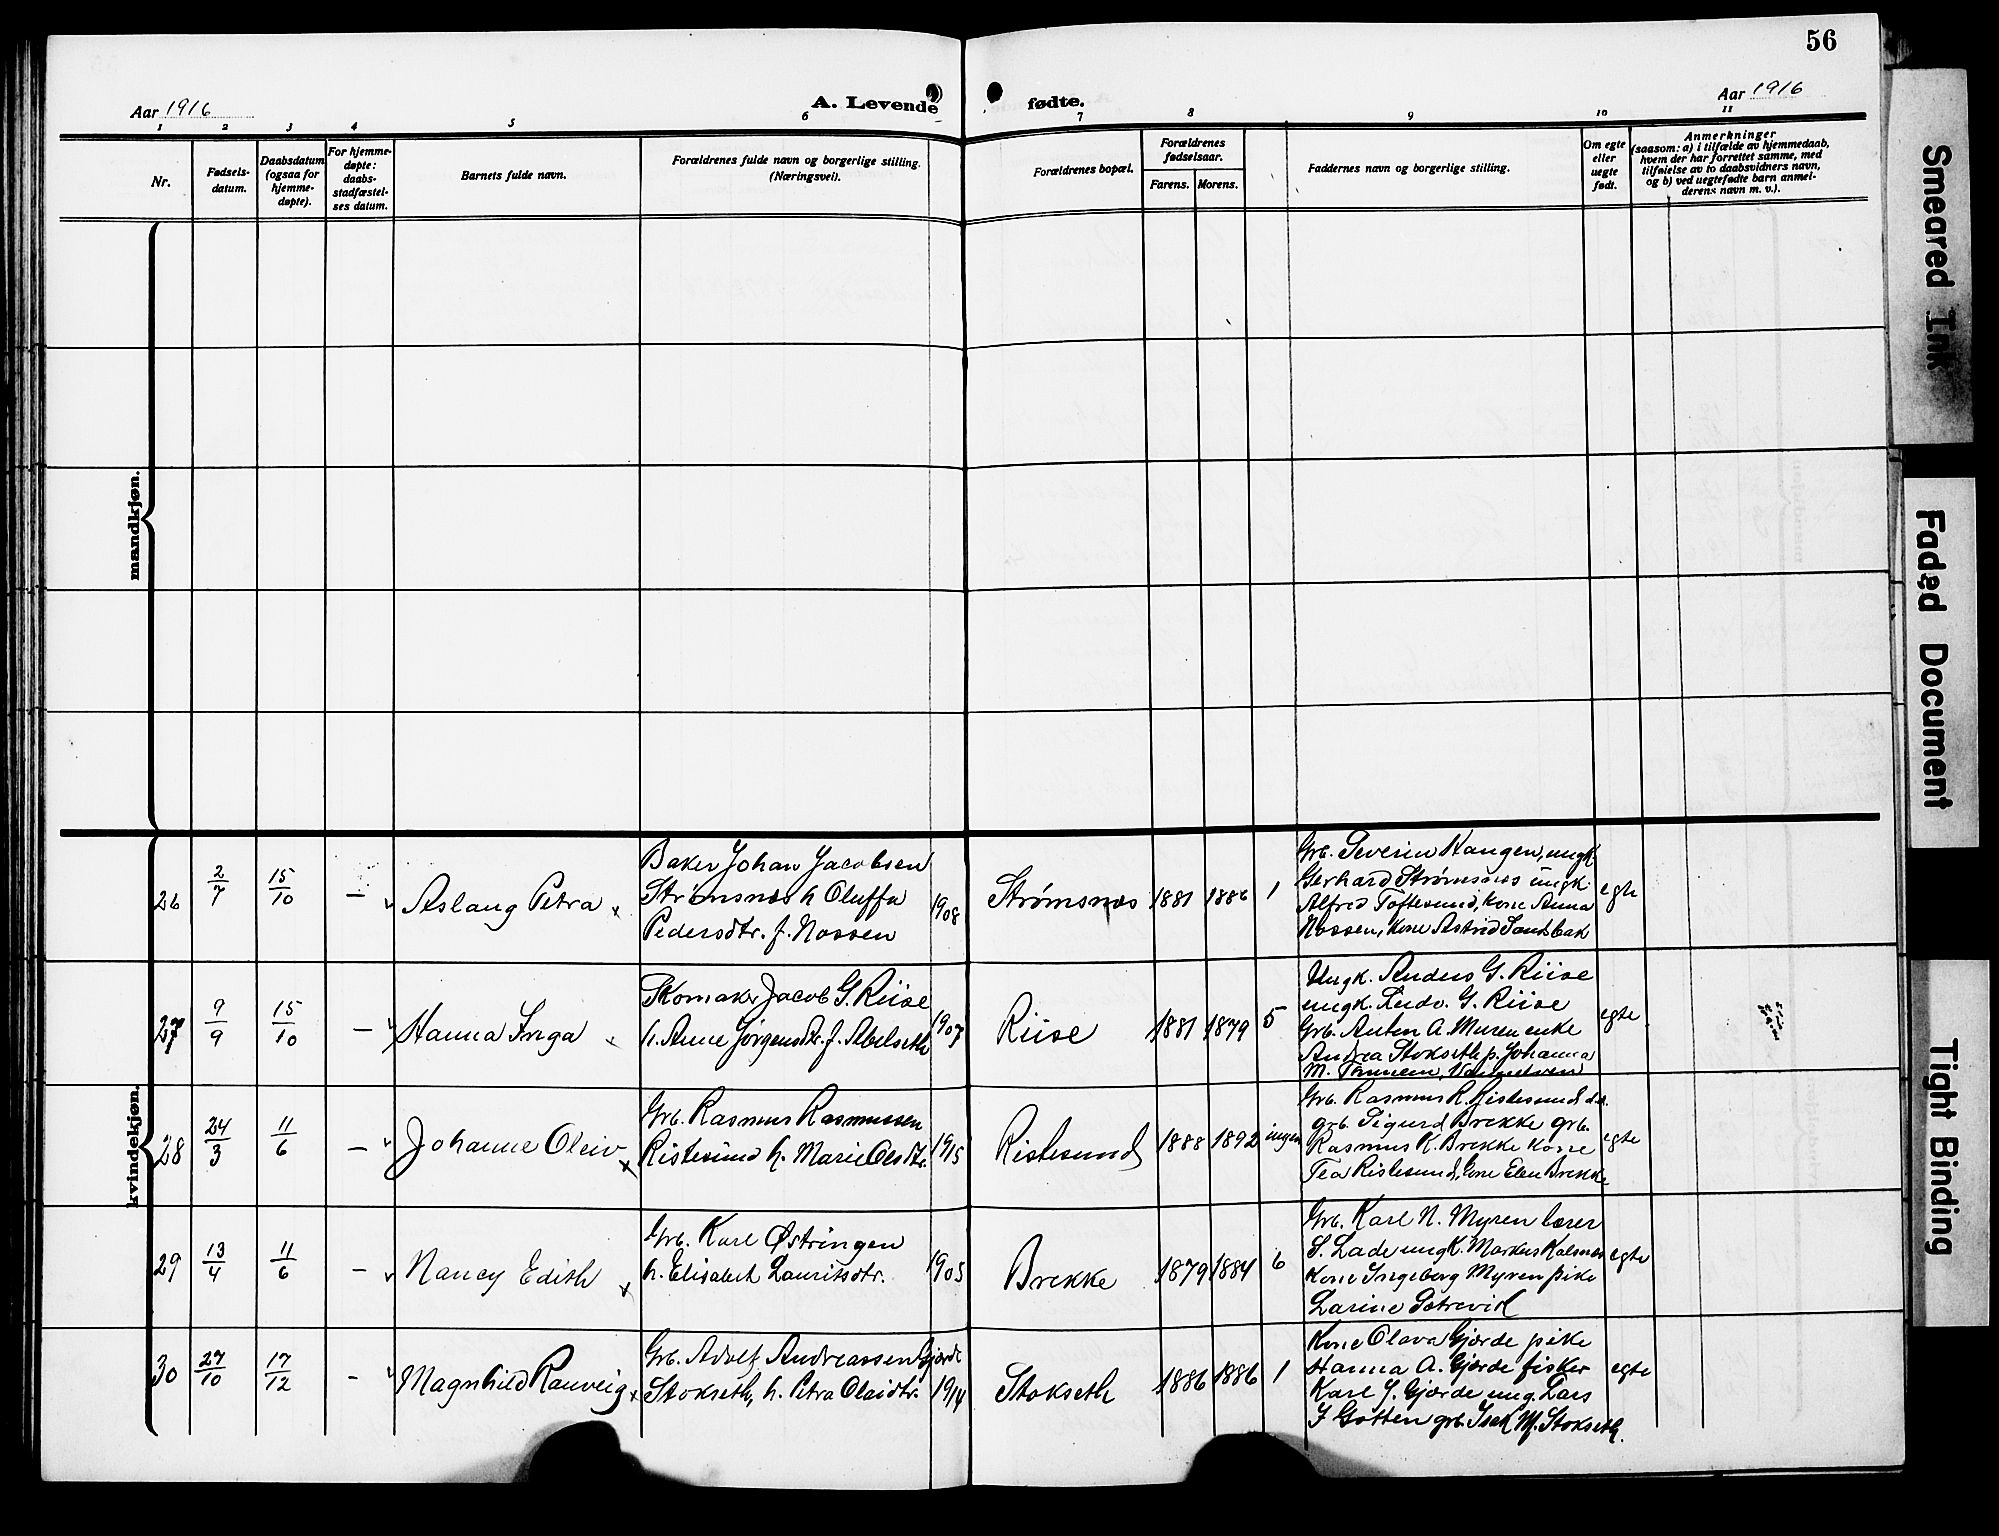 56
Aar 1916
A. Levende fødte.
Aar 1916
1 2 3 4 5 6 7 8 9 10 11
Nr.
Fødsels-
datum.
Daabsdatum
(ogsaa for
hjemme-
døpte).
For hjemme-
døpte:
daabs-
stadfæstel-
ses datum.
Barnets fulde navn.
Forældrenes fulde navn og borgerlige stilling.
(Næringsvei).
Forældrenes bopæl.
Forældrenes
fødselsaar.
Farens. Morens.
Faddernes navn og borgerlige stilling.
Om egte
eller
uegte
født.
Anmerkninger
(saasom: a) i tilfælde av hjemmedaab,
hvem der har forrettet samme, med
tilføielse av to daabsvidners navn,
og b) ved uegtefødte barn anmel-
derens navn m. v.).
mandkjøn.
kvindekjøn.
26 2/7 15/10 — Aslaug Petra
Baker Johan Jacobsen
Strømsnes h Oluffa
Pedersdtr. f. Nossen
1908 Strømsnes 1881 1886 1
Grb. Severin Kangen, ungk.
Gerhard Strømsnes ungk.
Alfred Toftesund, kone Anna
Nossen, kone Astrid Sandbak
egte
27 9/9 15/10 — Hanna Inga
Skomaker Jacob G. Riise
h. Anne Jørgensdtr. f. Abelseth
1907 Riise 1881 1879 5
Ungk. Anders G. Riise
ungk. Ludv. G. Riise
Grb. Anton A. Muren enke
Andrea Stokseth p. Johanna
M.
egte
28 24/3 11/6 — Johanne Oleiv
Grb. Rasmus Rasmussen
Ristesund h. Marie Olsdtr.
1915 Ristesund 1888 1892 ingen
Grb. Rasmus R. Ristesund
grb. Sigurd Brekke grb.
Rasmus K. Brekke kone
Tea Ristesund, kone Elen Brekke
egte
29 13/4 11/6 — Nancy Edith
Grb. Karl Østringen
h. Elisabet Lauritsdtr.
1905 Brekke 1879 1884 6
Grb. Karl N. Myren lærer
S. Lade ungk. Markus Kalsnes
Kone Ingeborg Myren pike
Larine
egte
30 27/10 17/12 - Magnhild Rauveig
Grb. Adolf Andreassen Gjørde
Stokseth, h. Petra Olaidtr.
1914 Stokseth 1886 1886 1
Kone Olava Gjørde pike
Hanna A. Gjørde fisker
Karl J. Gjørde ung. Lars
J Gotten grb. Isak M. Stokseth.
egte
Smeared Ink
Faded Document
Tight Binding